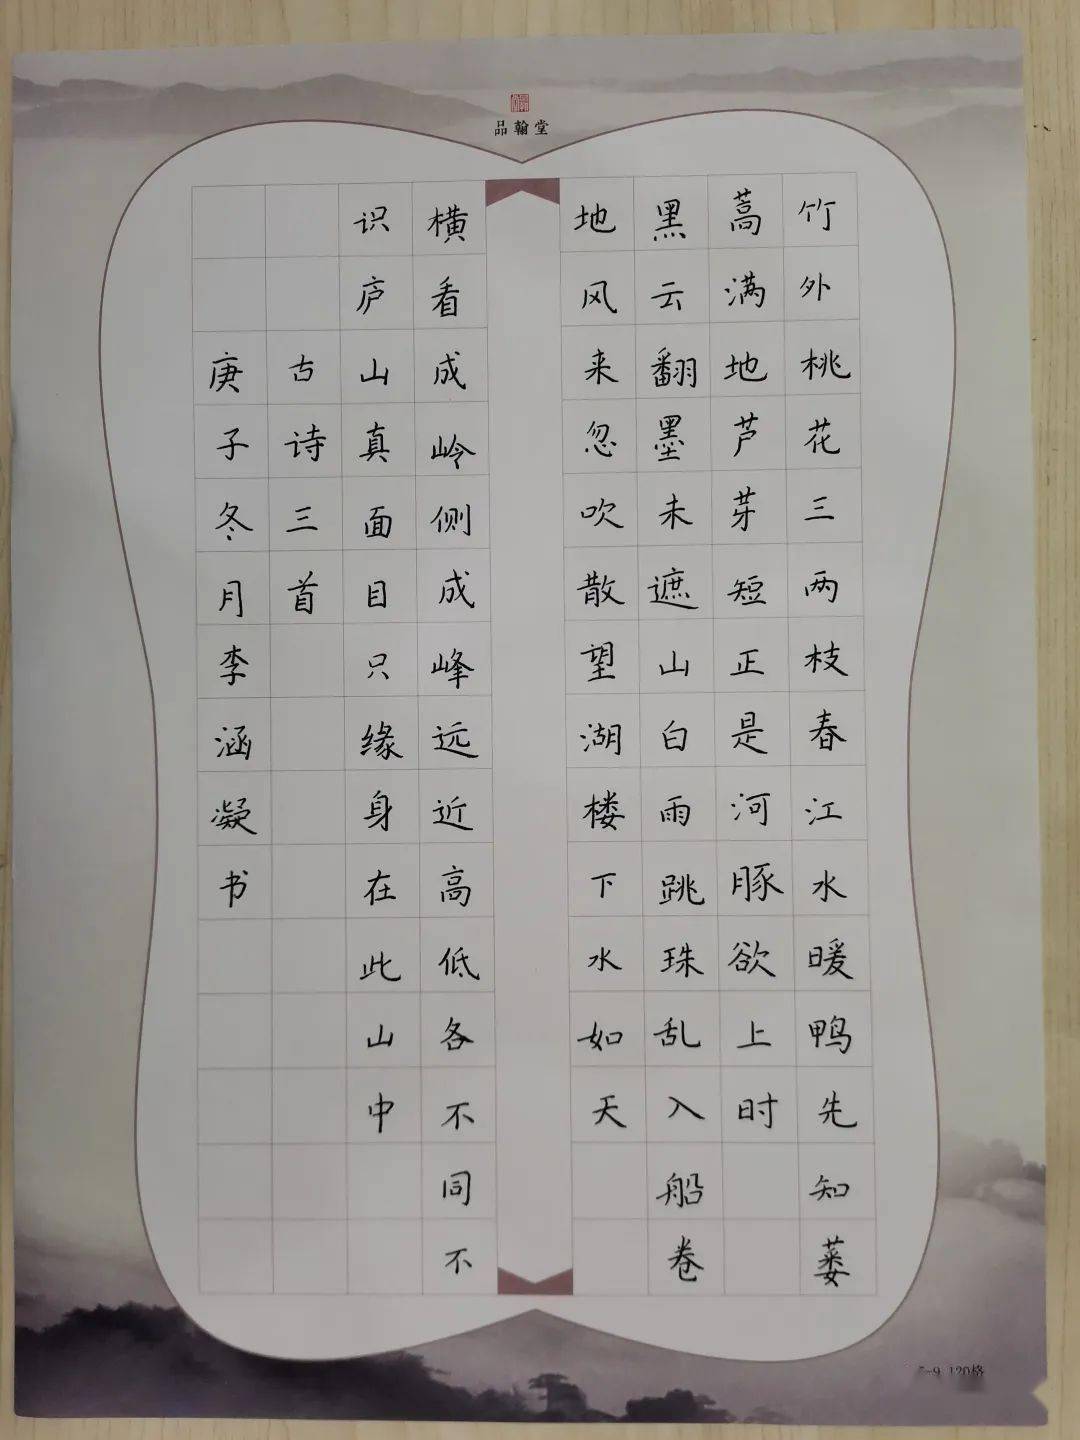 品翰堂
竹外桃花三两枝春江水暖鸭先知蒌
蒿满地芦芽短正是河豚欲上时
黑云翻墨未遮山白雨跳珠乱入船卷
地风来忽吹散望湖楼下水如天
横看成岭侧成峰远近高低各不同不
识庐山真面目只缘身在此山中
古诗三首
庚子冬月李涵凝书
120格